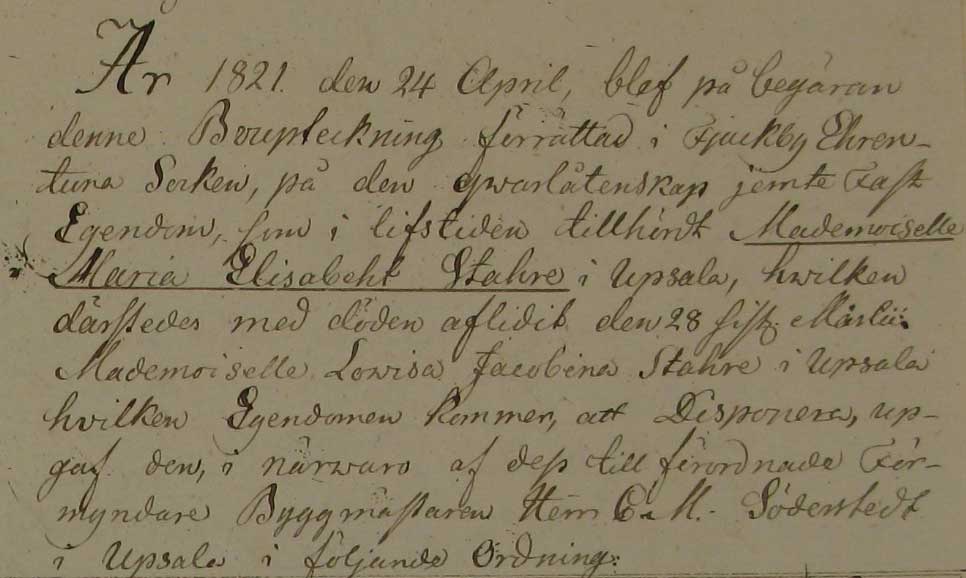 År 1821. den 24 April, blef på begäran
denne Boupteckning förrättad i Fjuckby Ehren-
tuna Socken, på den qwarlåtenskap jemte Fast
Egendom, som i lifstiden tillhördt Mademoiselle
Maria Elisabeht Stahre i Upsala, hwilken
därstedes med döden aflidit den 28 sistl. Martii:
Mademoiselle Lowisa Jacobina Stahre i Upsala
hvilken Egendomen kommer, att Disponera, up-
gaf den, i närwaro af dess till förordnade För-
myndare Byggmästaren Herr C. M. Söderstedt
i Upsala i följande Ordning: